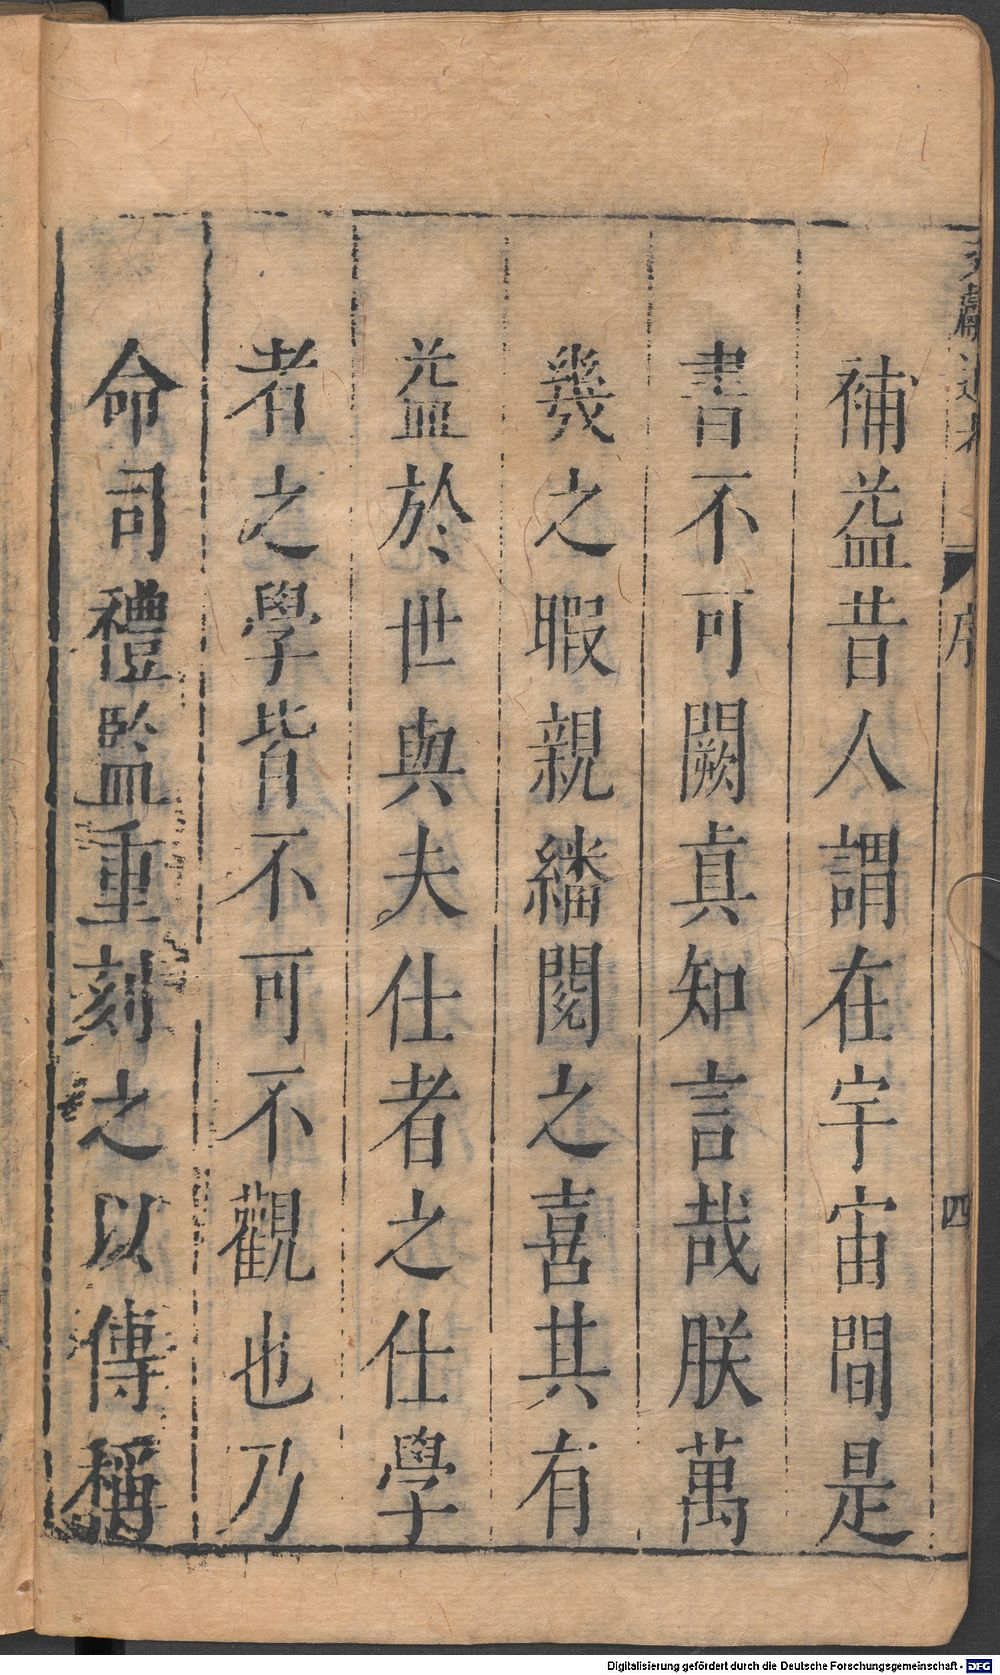 文獻通考
序
四
補益昔人謂在宇宙間是
書不可闕真知言哉朕萬
幾之暇親繙閱之喜其有
益於世與夫仕者之仕學
者之學皆不可不觀也乃
命司禮監重刻之以傳稱
Digitalisierung gefördert durch die Deutsche Forschungsgemeinschaft - DFG